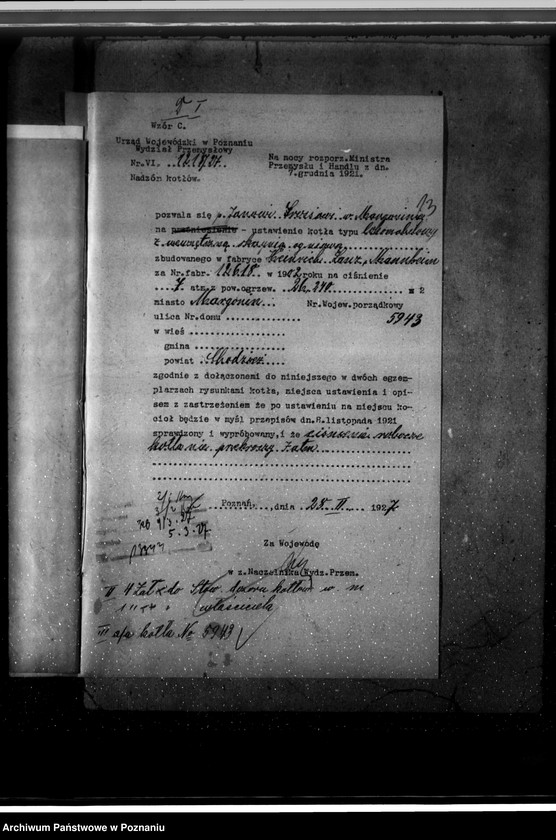 I
Wzór C.
Urząd Wojewódzki w Poznaniu
Wydział Przemysłowy
Nr.VI.
Nadzón kotłów.
Na mocy rozporz.Ministra
Przemysłu i Handlu z dn.
7.grudnia 1921.
13
pozwala się p.
na przeniesienie - ustawienie kotła typu lokomobilowy
z wewnętrzną
zbudowanego w fabryce Heinrich Lanz, Mannheim
za Nr.fabr. 12618 w 1902 roku na ciśnienie
7 atm.z pow.ogrzew. m 2
miasto Margonin Nr.Wojew.porządkowy
ulica Nr.domu 5943
w wieś
gmina
powiat Chodzież
zgodnie z dołączonemi do niniejszego w dwóch egzem-
plarzach rysunkami kotła, miejsca ustawienia i opi-
sem z zastrzeżeniem że po ustawieniu na miejscu ko-
cioł będzie w myśl przepisów dn.8.listopada 1921
sprawdzony i wypróbowany,i że ciśnienie robocze
kotła nie przekroczy 7 atm
Poznań, dnia 28. II. 1927
5.3.27
Za Wojewodę
w z.Naczelnika Wydz.Przem.
II 4 Zał do Stow. dozoru kotłów w m
właściciela
III a/a kotła No 5943